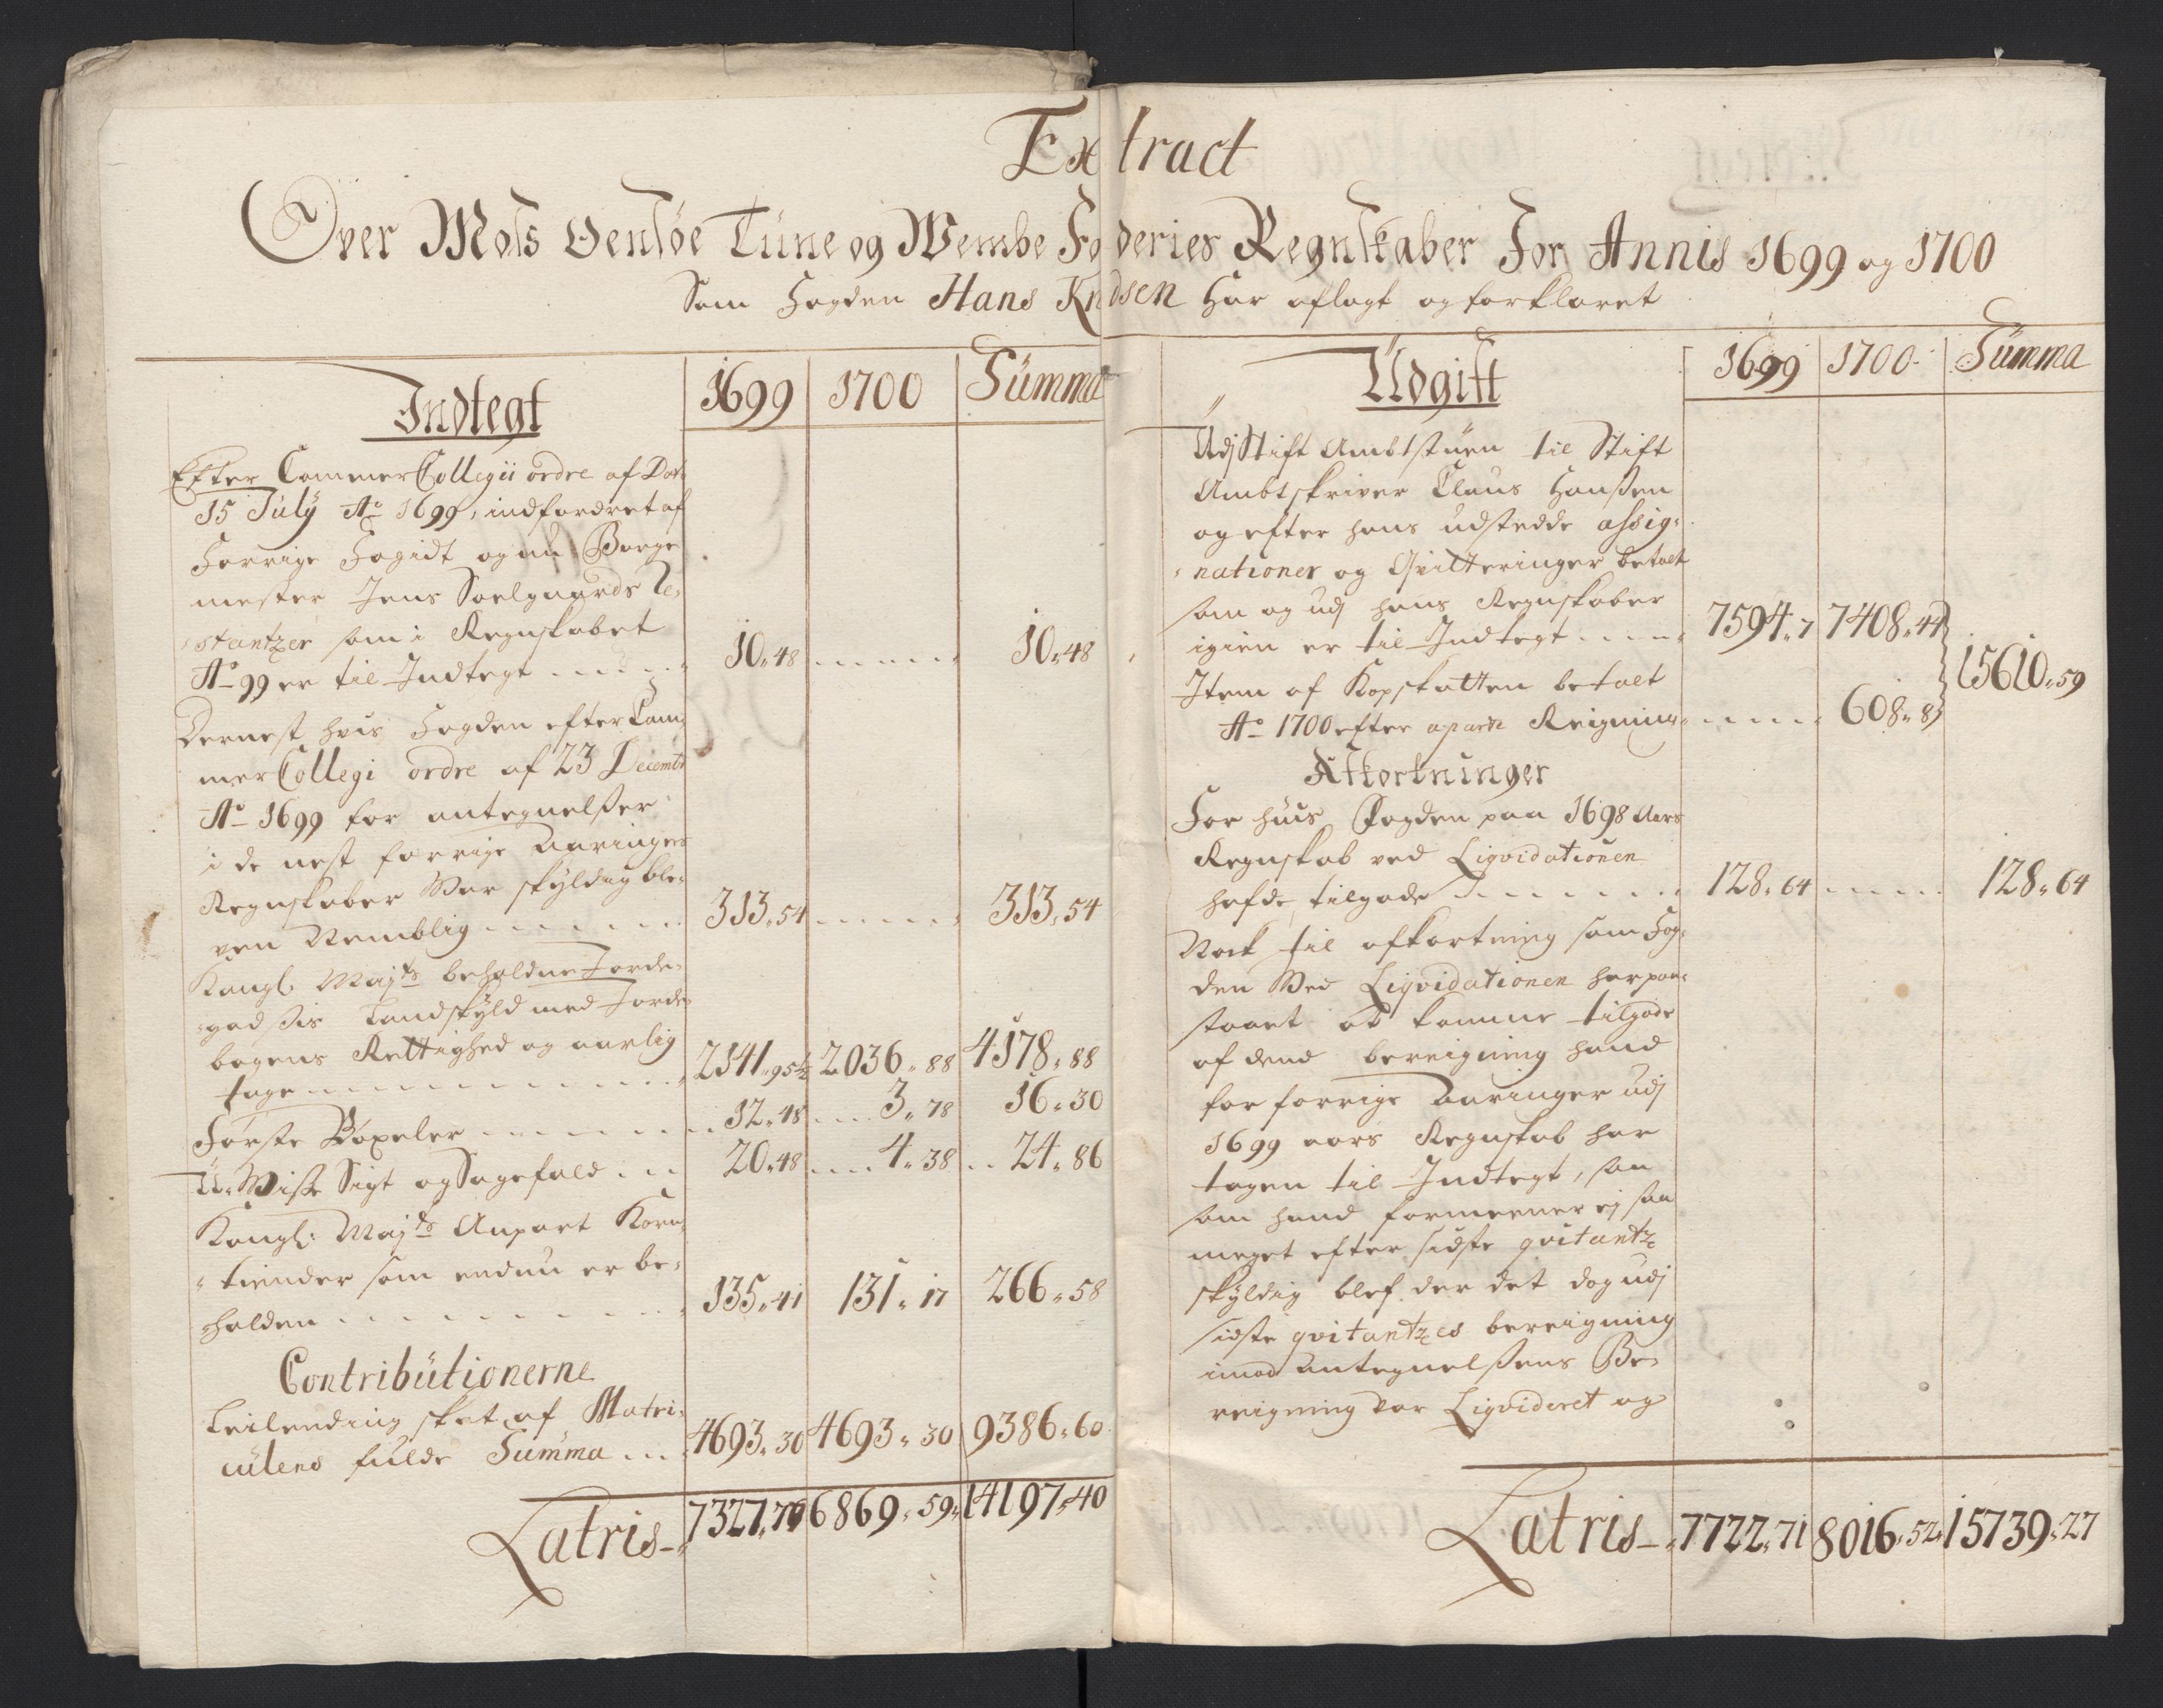 Extract
Over Moss Oensøe Tüne og Wembe Foderies Regnskaber For Annis 1699 og 1700
Som Fogden Hans Knudsen Har aflagt og forklaret
Indtegt 1699 1700 Summa
Efter CammerCollegii ordre af Dat:
15 July Ao 1699, indfordret af
Forrige Fogidt og nu Borge
mester Jens Soelgaards Re,
stantzer som i Regnskabet
Ao 99 er til Indtegt ..... 10„48 ..... 10„48
Dernest hvis Fogden efter Cam
mer Collegi ordre af 23 Decembr
Ao 1699 for antegnelsser
i de nest forrige Aaringers
Regnskaber War skyldig ble,
ven Nemblig ..... 313„54 ..... 313„54
Kongl. Majts beholdne Jorde,
godssis Landskyld med Jorde
bogens Rettighed og aarlig
tage ..... 2141„95½ 2036„88 4178„88
Første Bøxeler ..... 12„48 ... 3„78 16„30
U-Wisse Sigt og Sagefald ... 20„48 .... 4„38 .. 24„86
Kongl: Majts Anpart Korn
tiender som endnu er be,
holden ..... 135„41 131„17 266„58
Contributionerne
Leilending skat af Matri,
culens fulde Summa ... 4693„30 4693„30 9386„60
Latris 7327„76 6869„59 14197„40
Udgift 1699 1700 Summa
Udj Stift Ambtstuen til Stift
Ambtskriver Claus Hanssen
og efter hans udstedde assig,
nationer og Qvitteringer betalt
som og udj hans Regnskaber
igien er til Indtegt ..... 7594„7 7408„44
15610„59
Item af Kopskatten betalt
Ao 1700 efter apart Reigning ..... 608„8
Afkortninger
For huis Fogden paa 1698 Aars
Regnskab ved Liqvidationen
hafde tilgode ..... 128„64 ..... 128„64
Nock til afkortning som Fog,
den Ved Liqvidationen har paa,
staaet at komme tilgode
af dend bereigning hand
for forrige Aaringer udj
1699 aars Regnskab har
tagen til Indtegt, saa
som hand formeener ej saa
meget efter sidste qvitantz
skyldig blef der det dog udj
sidste qvitantzes bereigning
imod antegnelssens Be,
reigning var Liqvideret og
Latris 7722„71 8016„52 15739„27